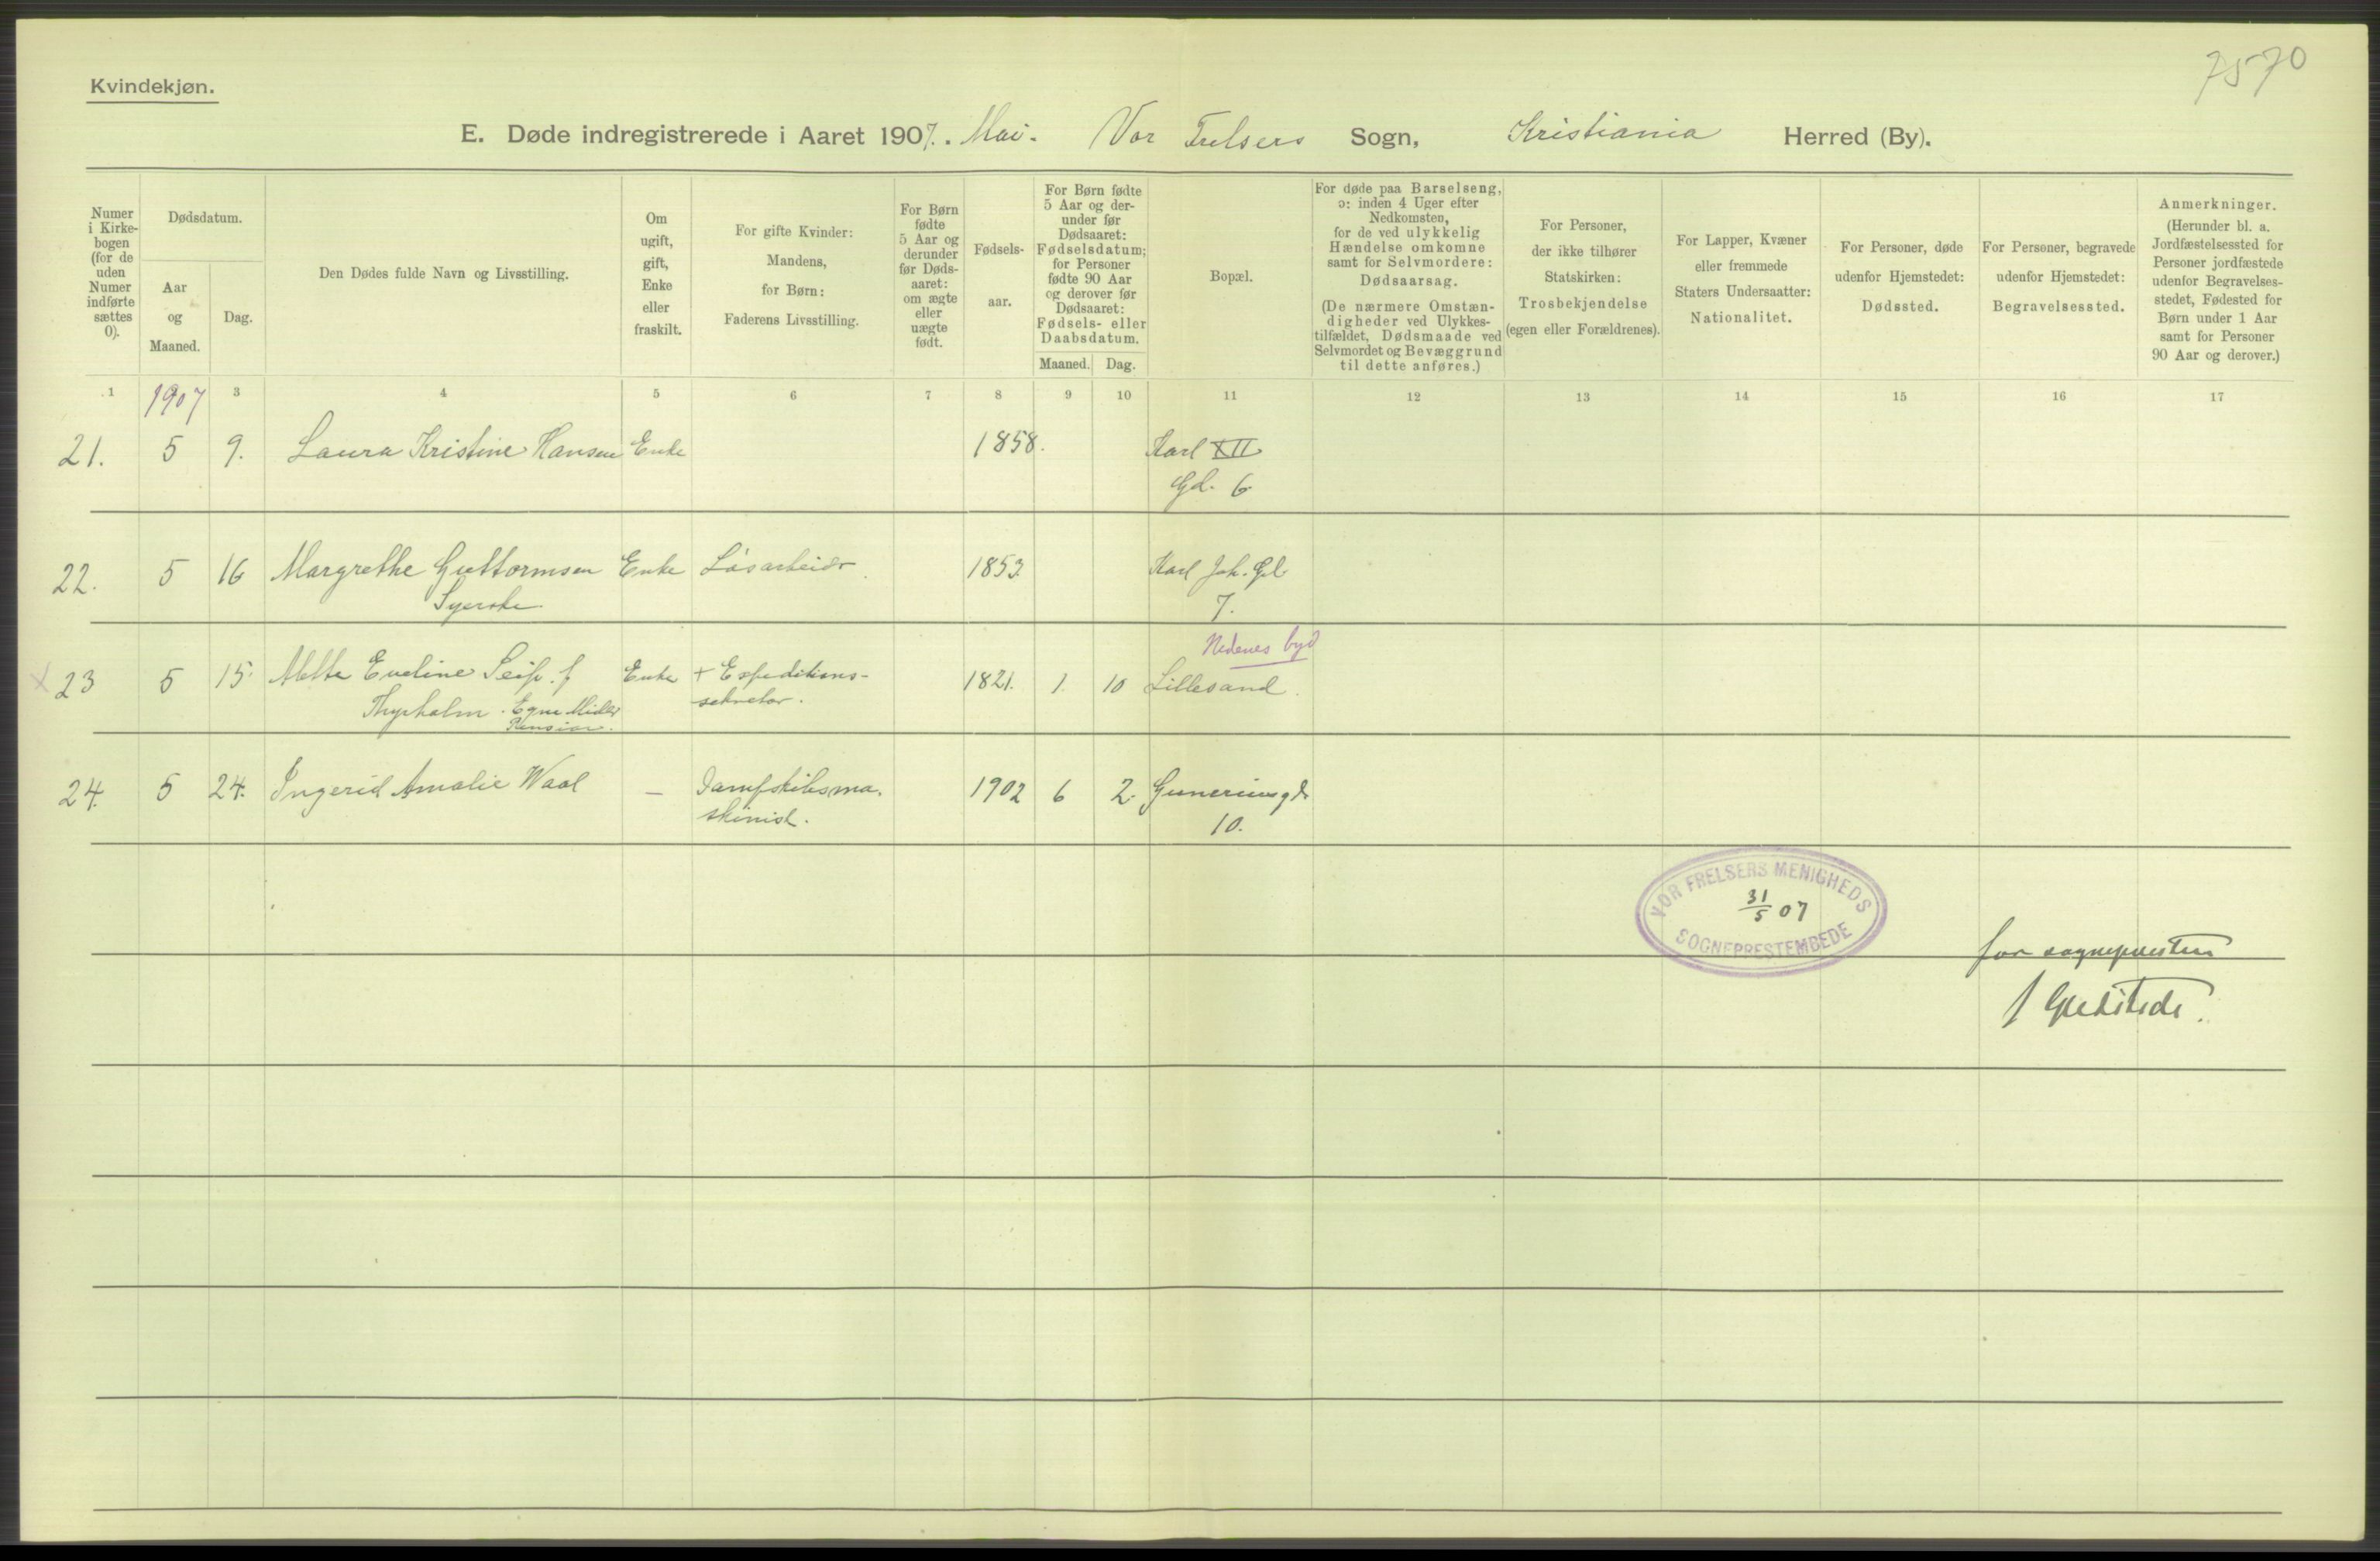 7570
Kvindekjøn.
E. Døde indregistrerede i Aaret 1907. Mai. Vor Frelsers Sogn, Kristiania Herred (By).
Numer
i Kirke-
bogen
(for de
uden
Numer
indførte
sættes
0).
Dødsdatum.
Aar
og
Maaned.
Dag.
Den Dødes fulde Navn og Livsstilling.
Om
ugift,
gift,
Enke
eller
fraskilt.
For gifte Kvinder:
Mandens,
for Børn:
Faderens Livsstilling.
For Børn
fødte
5 Aar og
derunder
før Døds-
aaret:
om ægte
eller
uægte
født.
Fødsels-
aar.
For Børn fødte
5 Aar og der-
under før
Dødsaaret:
Fødselsdatum;
for Personer
fødte 90 Aar
og derover før
Dødsaaret:
Fødsels- eller
Daabsdatum.
Maaned. Dag.
Bopæl.
For døde paa Barselseng,
ɔ: inden 4 Uger efter
Nedkomsten,
for de ved ulykkelig
Hændelse omkomne
samt for Selvmordere:
Dødsaarsag.
(De nærmere Omstæn-
digheder ved Ulykkes-
tilfældet, Dødsmaade ved
Selvmordet og Bevæggrund
til dette anføres.)
For Personer,
der ikke tilhører
Statskirken:
Trosbekjendelse
(egen eller Forældrenes).
For Lapper, Kvæner
eller fremmede
Staters Undersaatter:
Nationalitet.
For Personer, døde
udenfor Hjemstedet:
Dødssted.
For Personer, begravede
udenfor Hjemstedet:
Begravelsessted.
Anmerkninger.
(Herunder bl. a.
Jordfæstelsessted for
Personer jordfæstede
udenfor Begravelses-
stedet, Fødested for
Børn under 1 Aar
samt for Personer
90 Aar og derover.)
1 1907 3 4 5 6 7 8 9 10 11 12 13 14 15 16 17
21. 5 9. Laura Kristine Hansen Enke 1858. Karl XII
Gd. 6
22. 5 16 Margrethe Guttormsen Enke Løsarbeider 1853 Karl Joh. Gd
Syerske 7.
Nedenes byd
x 23 5 15. Mette Eveline Seip. f Enke + Expeditions- 1821. 1. 10 Lillesand.
Thyrholm. Egne Midler sekretær.
Pension.
24. 5 24. Ingerid Amalie Waal — Dampskibsma- 1902 6 2. Guneriusgd
skinist. 10.
VOR FRELSERS MENIGHEDS
31/5 07
SOGNEPRESTEMBEDE
for sognepresten